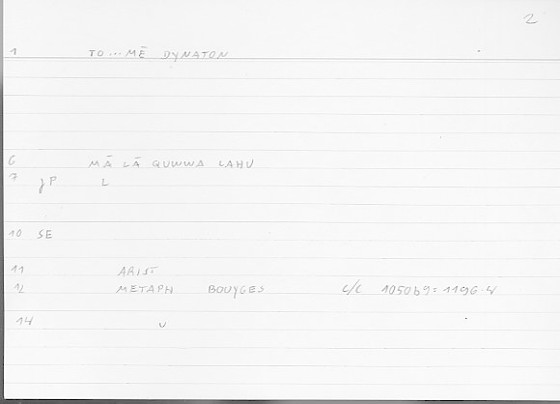 2
1 TO...MĒ DYNATON
6 MĀ LĀ QUWWA LAHU
7 L
10 SE
11 ARIST
12 METAPH BOUYGES 1050b9=1196.4
14 U